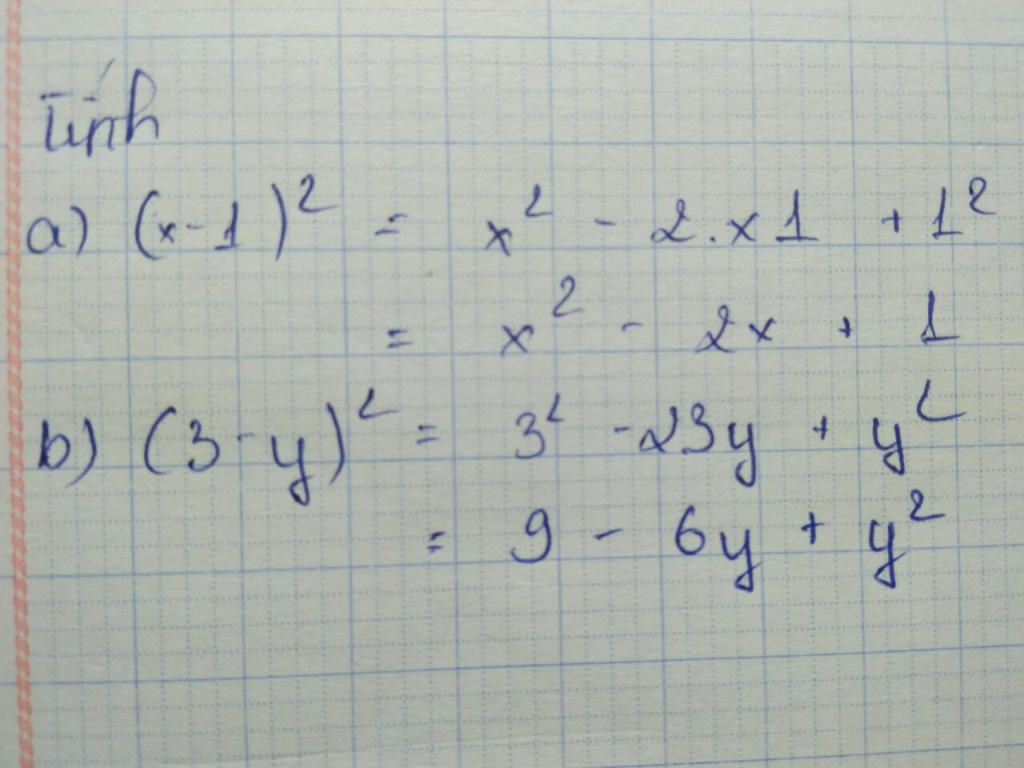 Tính
a) (x-1)² = x² - 2.x1 + 1²
= x² - 2x + 1
b) (3-y)² = 3² -23y + y²
= 9 - 6y + y²